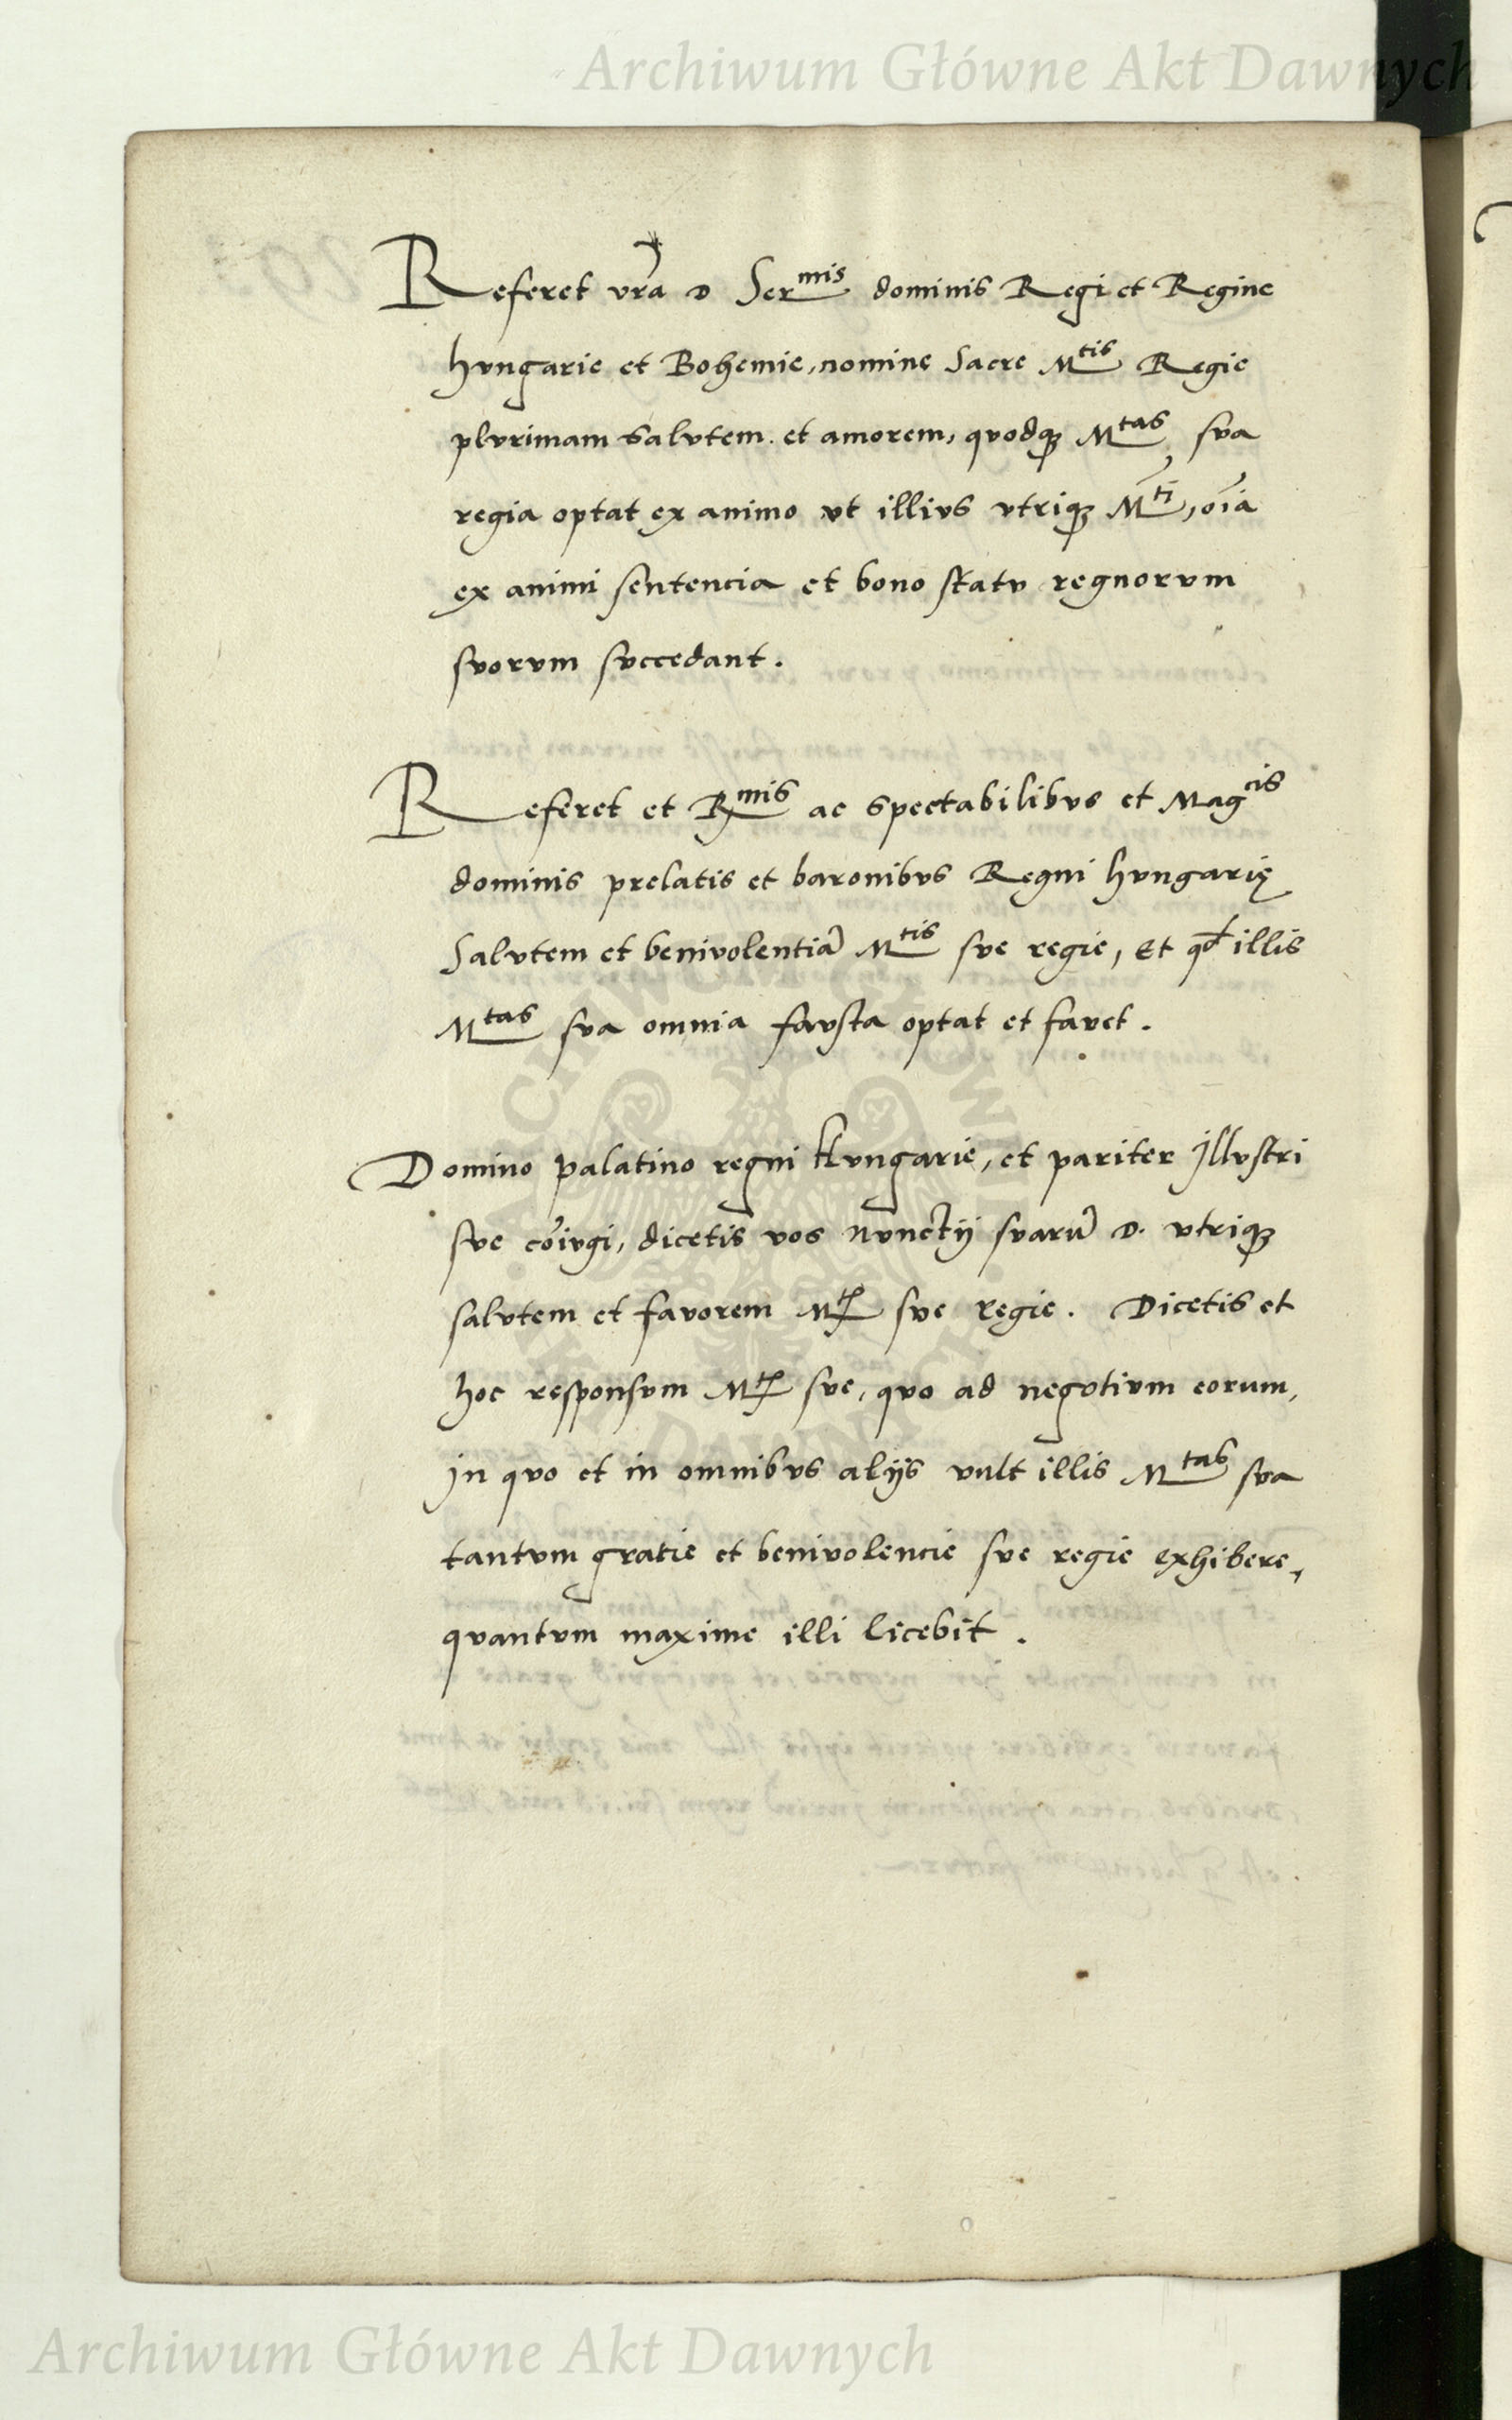 Archiwum Główne Akt Dawnych
Referet vra D Ser^mis dominis Regi et Regine
hvngarie et Bohemie, nomine Sacre M^tis Regie
plvrimam Salvtem. et amorem, qvodq; M^tas sva
regia optat ex animo vt illivs vtriq; M^ti, oia
ex animi sentencia et bono statv regnorvm
svorvm svccedant.
Referet et R^mis ac spectabilibvs et Mag^cis
dominis prelatis et baronibvs Regni hvngarię
Salvtem et benivolentiã M^tis sve regie, Et qd illis
M^tas sva omnia favsta optat et favet.
Domino palatino regni Hvngarie, et pariter Jllvstri
sve coivgi, dicetis vos nvnctij svarũ D. vtriq;
salvtem et favorem M^tis sve regie. Dicetis et
hoc responsvm M^tis sve, qvo ad negotivm eorum,
in qvo et in omnibvs alijs vult illis M^tas sva
tantvm gratie et benivolencie sve regie exhibere,
qvantvm maxime illi licebit.
ARCHIWUM GŁÓWNE AKT DAWNYCH
Archiwum Główne Akt Dawnych